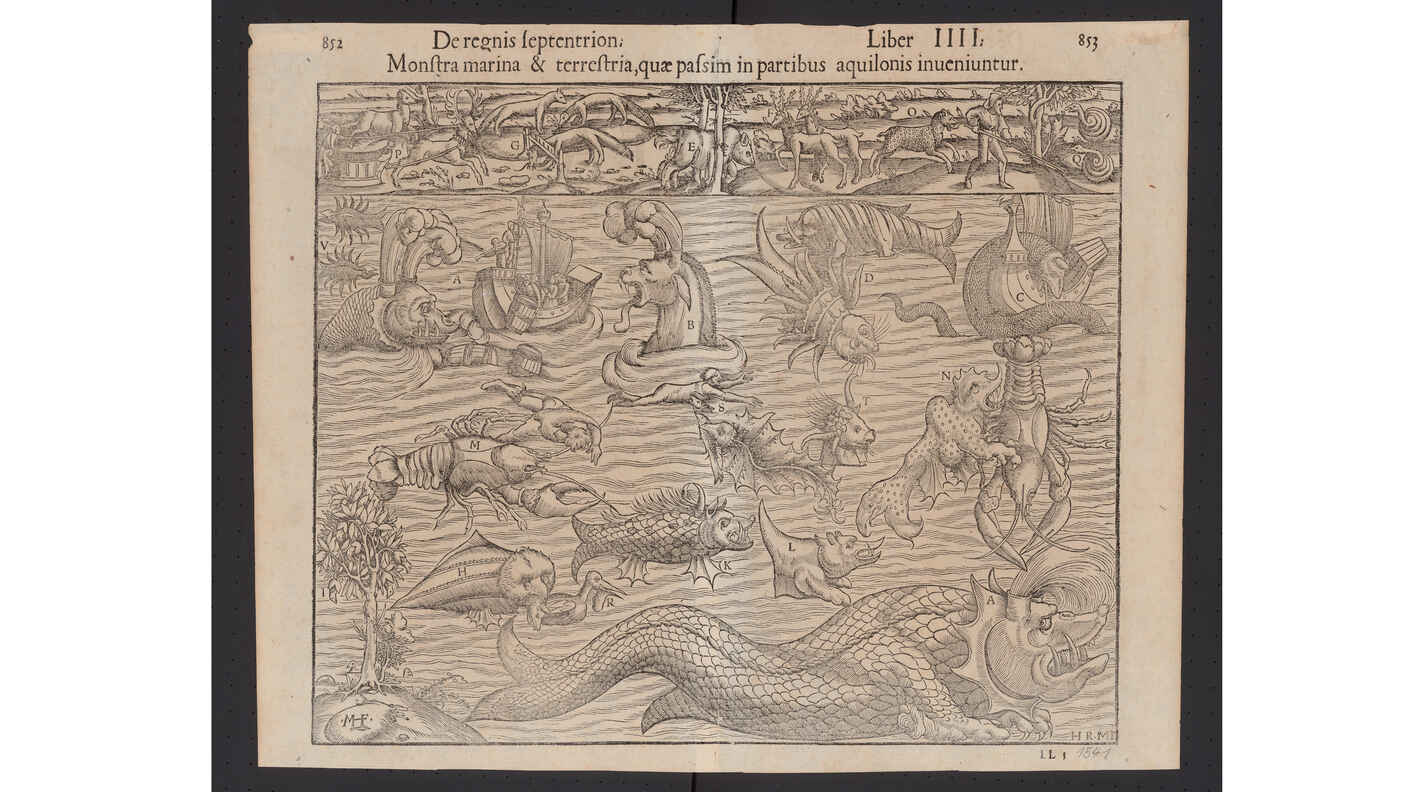 852 De regnis ſeptentrion: Liber IIII: 853
Monſtra marina & terreſtria, quæ paſsim in partibus aquilonis inueniuntur.
P G E O Q
V A B D C
N
S T
M
H K L
I R A
·MF· HRMD
1541